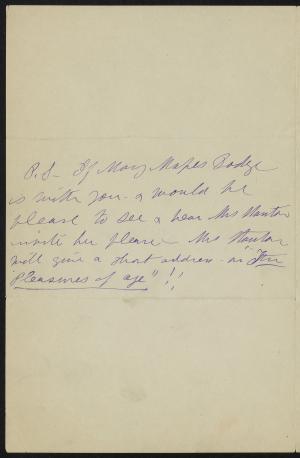 P.S. If Mary Mapes Dodge
is with you - & would be
please to see & hear Mrs Stanton
invite her please Mrs Stanton
will give a short address - on The
Pleasures of age" !!